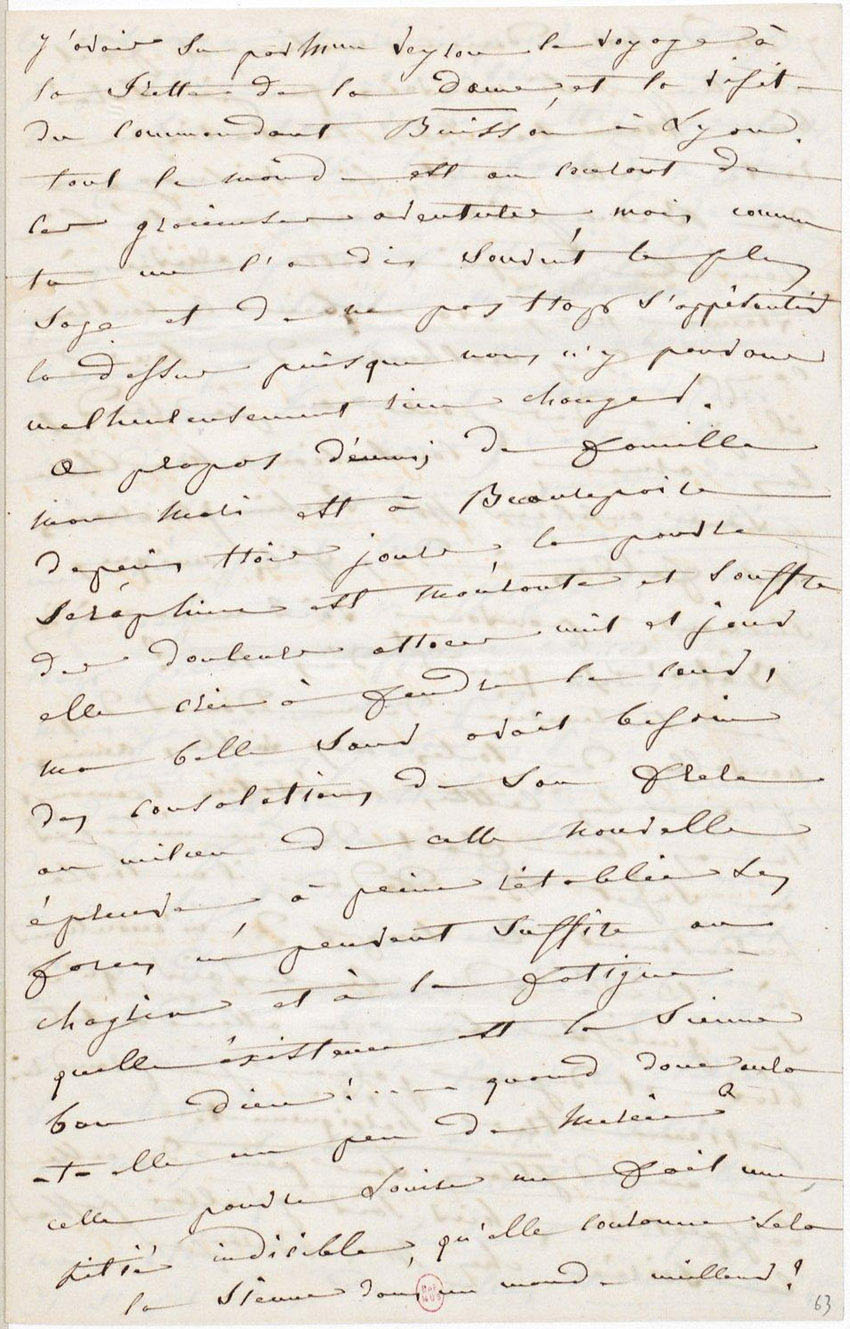 j'avais su par Mme Veyron le voyage à
la Frette de la dame et la visite
du commandant Buisson à Lyon.
tout le monde est au courant de
ces gracieuses aventures mais comme
tu me l'as dis souvent le plus
sage est de ne pas trop s'appésentir
la dessus puisque nous n'y pouvons
malheureusement rien changer.
a propos d'ennuis de famille
mon mari est à Beaurepaire
depuis trois jours la pauvre
Séraphine est mourante et souffre
des douleurs atroces nuit et jour
elle crie à fendre le coeur,
ma belle soeur avait besoin
des consolations de son frere
au milieu de cette nouvelle
épreuve à peine rétablie ses
forces ne peuvent suffire au
chagrin et à la fatigue
quelle éxistence est la sienne
bon dieu!... quand donc aura
-t-elle un peu de
cette pauvre Louise me fait une
pitié indicible, qu'elle couronne sera
la sienne dans un monde meilleur!
63